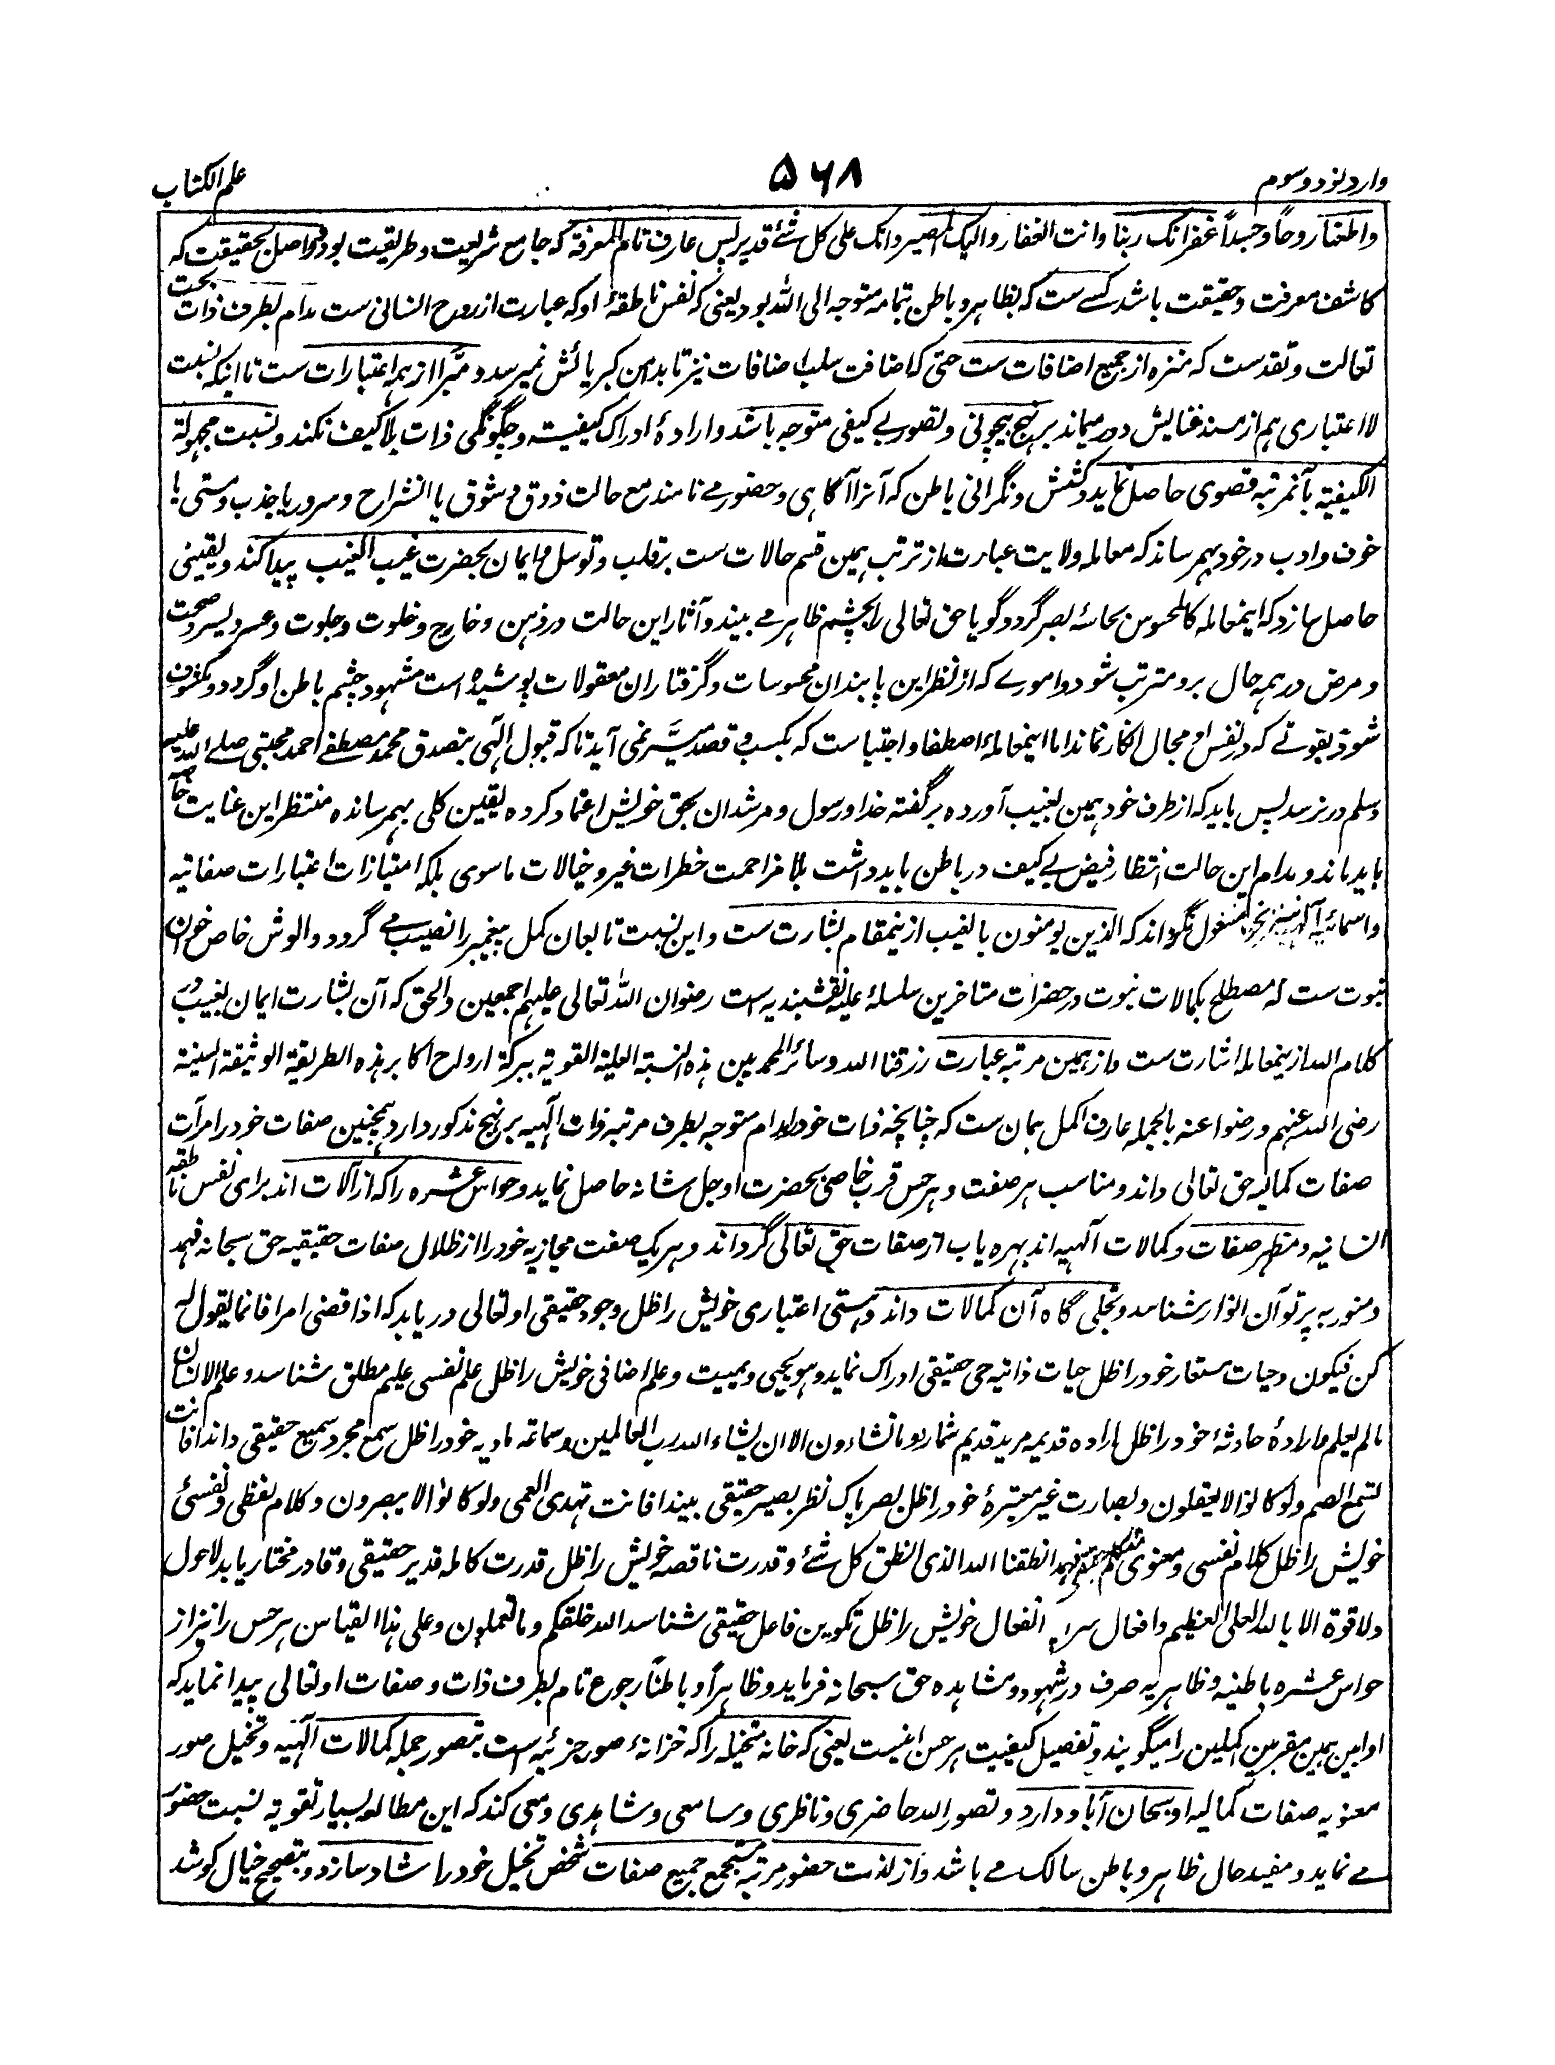 وارد نود و سوم
۵۶۸
علم الکتاب
واطعنا روحاً وجسداً غفرانک ربنا وانت الغفار والیک المصیر وانک علی کل شئ قدیر پس عارف تام المعرفة که جامع شریعت و طریقت بود و واصل بحقیقت که
کاشف معرفت و حقیقت باشد کسے ست که بظاهر و باطن بتمامه متوجه الی الله بود یعنی که نفس ناطقهٔ او که عبارت از روح انسانی ست مدام بطرف ذات بحت
تعالت و تقدست که منزه از جمیع اضافات ست حتی که اضافت سلب اضافات نیز تا بدامن کبریائش نمیرسد و مبرّا از همه اعتبارات ست تا اینکه نسبت
لا اعتباری هم از مسند غنایش دور میماند بر نهج بیچونی و تصور بے کیفی متوجه باشد و ارادهٔ ادراک کیفیت و چگونگی ذات بلا کیف نکند و نسبت مجهولة
الکیفیة بآنمرتبه قصوی حاصل نماید و کشش و نگرانی باطن که آنرا آگاهی و حضور مے نامند مع حالت ذوق و شوق یا انشراح و سرور یا جذب و مستی یا
خوف و ادب در خود بهمرساند که معامله ولایت عبارت از ترتب همین قسم حالات ست بر قلب و توسل و ایمان بحضرت غیب الغیب پیدا کند و یقینی
حاصل سازد که اینمعامله کالمحسوس بحاسهٔ بصر گردد گویا حق تعالی را بچشم ظاهر مے بیند و آثار این حالت در ذهن و خارج و خلوت و جلوت و عسر و یسر و صحت
و مرض در همه حال برو مترتب شود و امورے که از نظر این پابندان محسوسات و گرفتاران معقولات پوشیده است مشهود چشم باطن او گردد و مکشوف
شود بقوتے که در نفس او مجال انکار نماند اما اینمعاملهٔ اصطفا و اجتباست که بکسب و قصد میسّر نمی آید تا که قبول الٓهی بتصدق محمد مصطفے احمد مجتبی صلے الله علیه
وسلم در نرسد پس باید که از طرف خود همین بغیب آورده بر گفته خدا و رسول و مرشدان بحق خویش اعتماد کرده یقین کلی بهمرسانده منتظر این عنایت خاصه
باید ماند و مدام این حالت انتظار فیض بے کیف در باطن باید داشت بلا مزاحمت خطرات غیر و خیالات ماسوی بلکه امتیازات اعتبارات صفاتیه
و اسمائیه الٓهیه نیز بخود مشغول نگرداند که الذین یومنون بالغیب ازینمقام بشارت ست و این نسبت تابعان کمل پیغمبر را نصیب مے گردد و الوش خاص خوان
نبوت ست که مصطلح بکمالات نبوت در حضرات متاخرین سلسلهٔ علیه نقشبندیه است رضوان الله تعالی علیهم اجمعین والحق که آن بشارت ایمان بغیب در
کلام الله ازینمعامله اشارت ست و از همین مرتبه عبارت رزقنا الله وسائر المحمدیین هذه النسبة العلیة القویة ببرکة ارواح اکابر هذه الطریقة الوثیقة السنیة
رضی الله عنهم و رضوا عنه بالجمله عارف اکمل همان ست که چنانچه ذات خود را مدام متوجه بطرف مرتبه ذات الٓهیه بر نهج مذکور دارد همچنین صفات خود را مرآت
صفات کمالیه حق تعالی داند و مناسب هر صفت و هر حس قرب خاصی بحضرت او جل شانه حاصل نماید و حواس عشره را که از آلات اند برای نفس ناطقه
انسانیه و مظهر صفات و کمالات الٓهیه اند بهره یاب از صفات حق تعالی گرداند و هر یک صفت مجازیه خود را از ظلال صفات حقیقیه حق سبحانه فهمد
و منور به پرتو آن انوار شناسد و تجلی گاه آن کمالات داند و هستی اعتباری خویش را ظل وجود حقیقی او تعالی دریابد که اذا قضی امرا فانما یقول له
کن فیکون و حیات مستعار خود را ظل حیات ذاتیه حی حقیقی ادراک نماید و هو یحیی و یمیت و علم اضافی خویش را ظل علم نفسی علیم مطلق شناسد و علم الانسان
مالم یعلم و ارادهٔ حادثهٔ خود را ظل ارادهٔ قدیمه مرید قدیم شمارد و ما تشاءون الا ان یشاء الله رب العالمین و سامعه مادیه خود را ظل سمع مجرد سمیع حقیقی داند افانت
تسمع الصم ولو کانوا لا یعقلون و بصارت غیر معتبرهٔ خود را ظل بصر پاک نظر بصیر حقیقی بیند افانت تهدی العمی ولو کانوا لا یبصرون و کلام لفظی و نفسئ
خویش را ظل کلام نفسی و معنوی متکلم حقیقی فهمد انطقنا الله الذی انطق کل شئ و قدرت ناقصه خویش را ظل قدرت کامله قدیر حقیقی و قادر مختار یابد لاحول
ولاقوة الا بالله العلی العظیم و افعال انفعال خویش را ظل تکوین فاعل حقیقی شناسد الله خلقکم وما تعملون و علی هذا القیاس هر حس را نیز از
حواس عشره باطنیه و ظاهریه صرف در شهود و مشاهده حق سبحانه فرماید و ظاهراً و باطناً رجوع تام بطرف ذات و صفات او تعالی پیدا نماید که
اوابین همین مقربین اکملین را میگویند و تفصیل کیفیت هر حس اینست یعنی که خانه متخیله را که خزانهٔ صور جزئیه است بتصور جمله کمالات الٓهیه و تخیل صور
معنویه صفات کمالیه او سبحانه آباد دارد و تصور الله حاضری و ناظری و سامعی و شاهدی و معی کند که این مطالعه بسیار تقویه نسبت حضور
مے نماید و مفید حال ظاهر و باطن سالک مے باشد و از لذت حضور مرتبه مستجمع جمیع صفات شخص تخیل خود را شاد سازد و بتصحیح خیال کوشد